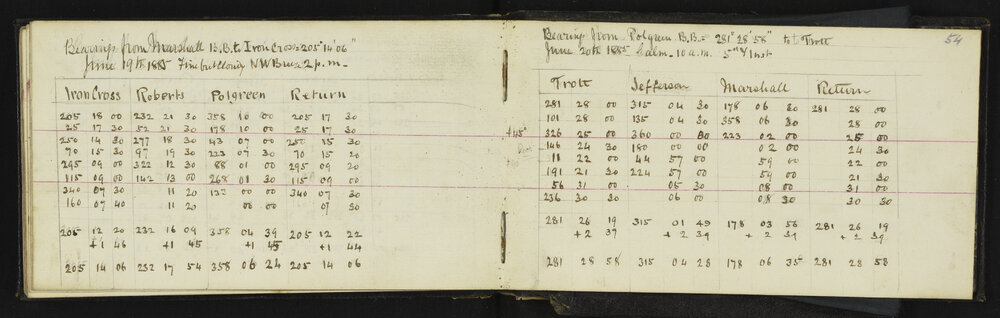 Bearings from Marshall B.B. to Iron Cross 205° 14' 06"
June 19th 1885 Fine but cloudy N.W Breeze 2 p.m.
Iron Cross Roberts Polgreen Return
205 18 00 232 21 30 358 10 00 205 17 30
25 17 30 52 21 30 178 10 00 25 17 30
250 14 30 277 18 30 43 07 00 250 15 30
70 15 30 97 19 30 223 07 30 70 15 20
295 09 00 322 12 30 88 01 00 295 09 20
115 09 00 142 13 00 268 01 30 115 09 00
340 07 30 11 20 132 00 00 340 07 30
160 07 40 11 20 00 00 07 30
205 12 20 232 16 09 358 04 39 205 12 22
+1 46 +1 45 +1 45 +1 44
205 14 06 232 17 54 358 06 24 205 14 06
54
Bearing from Polgreen B.B. = 281° 28' 58" to Trott
June 20th 1885 Calm - 10 a.m. 5" Inst
Trott Jefferson Marshall Return
281 28 00 315 04 30 178 06 30 281 28 00
101 28 00 135 04 30 358 06 30 28 00
+45° 326 25 00 360 00 00 223 02 00 25 00
146 24 30 180 00 00 02 00 24 30
11 22 00 44 57 00 59 00 22 00
191 21 30 224 57 00 59 00 21 30
56 31 00 05 30 08 00 31 00
236 30 30 06 00 08 30 30 30
281 26 19 315 01 49 178 03 56 281 26 19
+2 39 +2 39 +2 39 +2 39
281 28 58 315 04 28 178 06 35 281 28 58